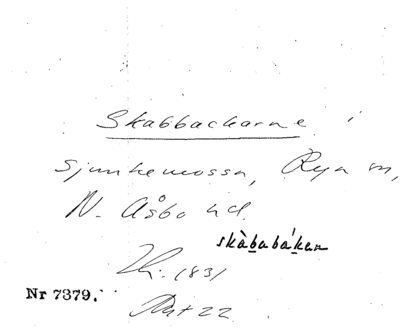 Skabbackarne i
Sjunkemossa, Rya sn,
N. Åsbo hd.
skàbabákan
1831
Nr 7379.
22